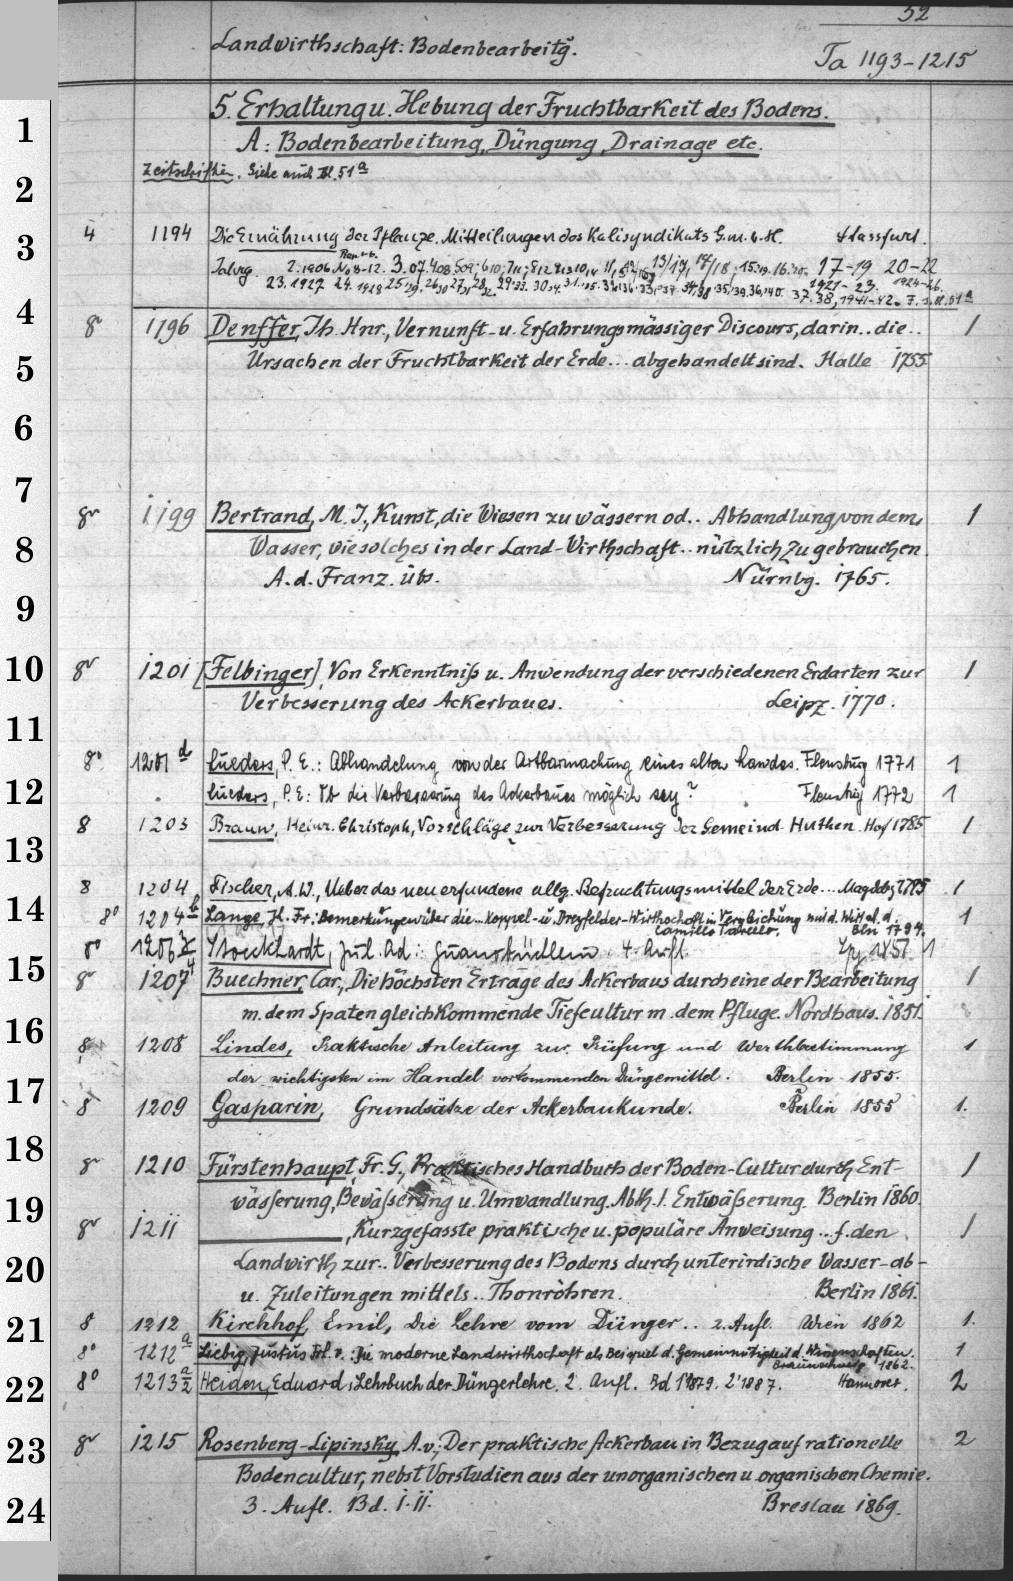 52
Landwirthschaft: Bodenbearbeitg.
Ta 1193-1215
1
5. Erhaltung u. Hebung der Fruchtbarkeit des Bodens.
A: Bodenbearbeitung, Düngung, Drainage etc.
2
Zeitschriften. Siehe auch Bl. 51a
3
4 1194 Die Ernährung der Pflanze. Mitteilungen des Kalisyndikats G.m.b.H. Stassfurt.
Jahrg. 2.1906 No 8-12. 3.07. 4.08; 5.09; 6.10; 7.11; 8.12 9.13 17-19 20-22
23.1927 24.1928 1921-23. 1924-26.
4
8 1196 Denffer, Jh. Hnr., Vernunft- u. Erfahrungsmässiger Discours, darin.. die.. 1
5
Ursachen der Fruchtbarkeit der Erde... abgehandelt sind. Halle 1755
6
7
8 1199 Bertrand, M. J., Kunst, die Wiesen zu wässern od.. Abhandlung von dem 1
8
Wasser, wie solches in der Land-Wirthschaft.. nützlich zu gebrauchen.
A. d. Franz. übs. Nürnbg. 1765.
9
10
8 1201 [Felbinger], Von Erkenntniß u. Anwendung der verschiedenen Erdarten zur 1
Verbesserung des Ackerbaues. Leipz. 1770.
11
8° 1201d Lueders, P. E.: Abhandelung von der Artbarmachung eines alten Landes. Flensburg 1771 1
12
Lueders, P. E.: Ob die Verbesserung des Ackerbaues möglich sey? Flensburg 1772 1
8 1203 Braun, Heinr. Christoph, Vorschläge zur Verbesserung der Gemeind-Huthen. Hof 1785 1
13
8 1204 Fischer, A. W., Ueber das neu erfundene allg. Befruchtungsmittel der Erde... Magdebg 1795 1
14
8° 1204b Lange, Jl. Fr.: Bemerkungen über die.. Koppel- u. Dreyfelder-Wirthschaft in Vergleichung mit d. d. 1
Camillo Tarello. Bln 1794.
8° 1206 Stoeckhardt, Jul. Ad.: Guanobüchlein. 4. Aufl. Lpz. 1857 1
15
8 1207 Buechner, Car., Die höchsten Erträge des Ackerbaus durch eine der Bearbeitung 1
m. dem Spaten gleichkommende Tiefcultur m. dem Pfluge. Nordhaus. 1851.
16
8 1208 Lindes, Praktische Anleitung zur Prüfung und Werthbestimmung 1
der wichtigsten im Handel vorkommenden Düngemittel. Berlin 1855.
17
8 1209 Gasparin, Grundsätze der Ackerbaukunde. Berlin 1855 1.
18
8 1210 Fürstenhaupt, Fr. G., Praktisches Handbuch der Boden-Cultur durch Ent- 1
wäßerung, Bewäßerung u. Umwandlung. Abth. I. Entwäßerung. Berlin 1860.
19
8 1211 ———, Kurzgefasste praktische u. populäre Anweisung.. f. den 1
20
Landwirth zur.. Verbesserung des Bodens durch unterirdische Wasser-ab-
u. Zuleitungen mittels.. Thonröhren. Berlin 1861.
21
8 1212 Kirchhof, Emil, die Lehre vom Dünger.. 2. Aufl. Wien 1862 1.
8° 1212a Liebig, Justus Frh. v.: Die moderne Landwirthschaft als Beispiel d. Gemeinnützigkeit d. Wissenschaften. 1
Braunschweig 1862.
22
8° 1213a/2 Heiden, Eduard: Lehrbuch der Düngerlehre. 2. Aufl. Bd 1 1879. 2 1887. Hannover. 2
23
8 1215 Rosenberg-Lipinsky, A. v., Der praktische Ackerbau in Bezug auf rationelle 2
Bodencultur, nebst Vorstudien aus der unorganischen u. organischen Chemie.
24
3. Aufl. Bd. I. II. Breslau 1869.